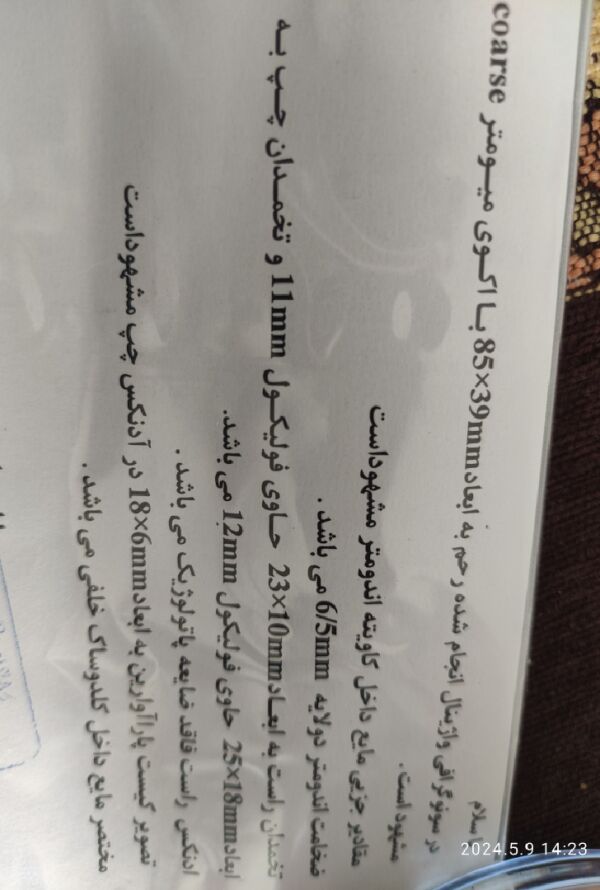 با سلام
در سونوگرافی واژینال انجام شده رحم به ابعاد 85×39mm با اکوی میومتر coarse
مشهود است.
مقادیر جزیی مایع داخل کاویته اندومتر مشهوداست
ضخامت اندومتر دولایه 6/5mm می باشد .
تخمدان راست به ابعاد 23×10mm حاوی فولیکول 11mm و تخمدان چپ به
ابعاد 25×18mm حاوی فولیکول 12mm می باشد.
ادنکس راست فاقد ضایعه پاتولوژیک می باشد .
تصویر کیست پاراآوارین به ابعاد 18×6mm در آدنکس چپ مشهوداست
مختصر مایع داخل کلدوساک خلفی می باشد .
2024.5.9 14:23